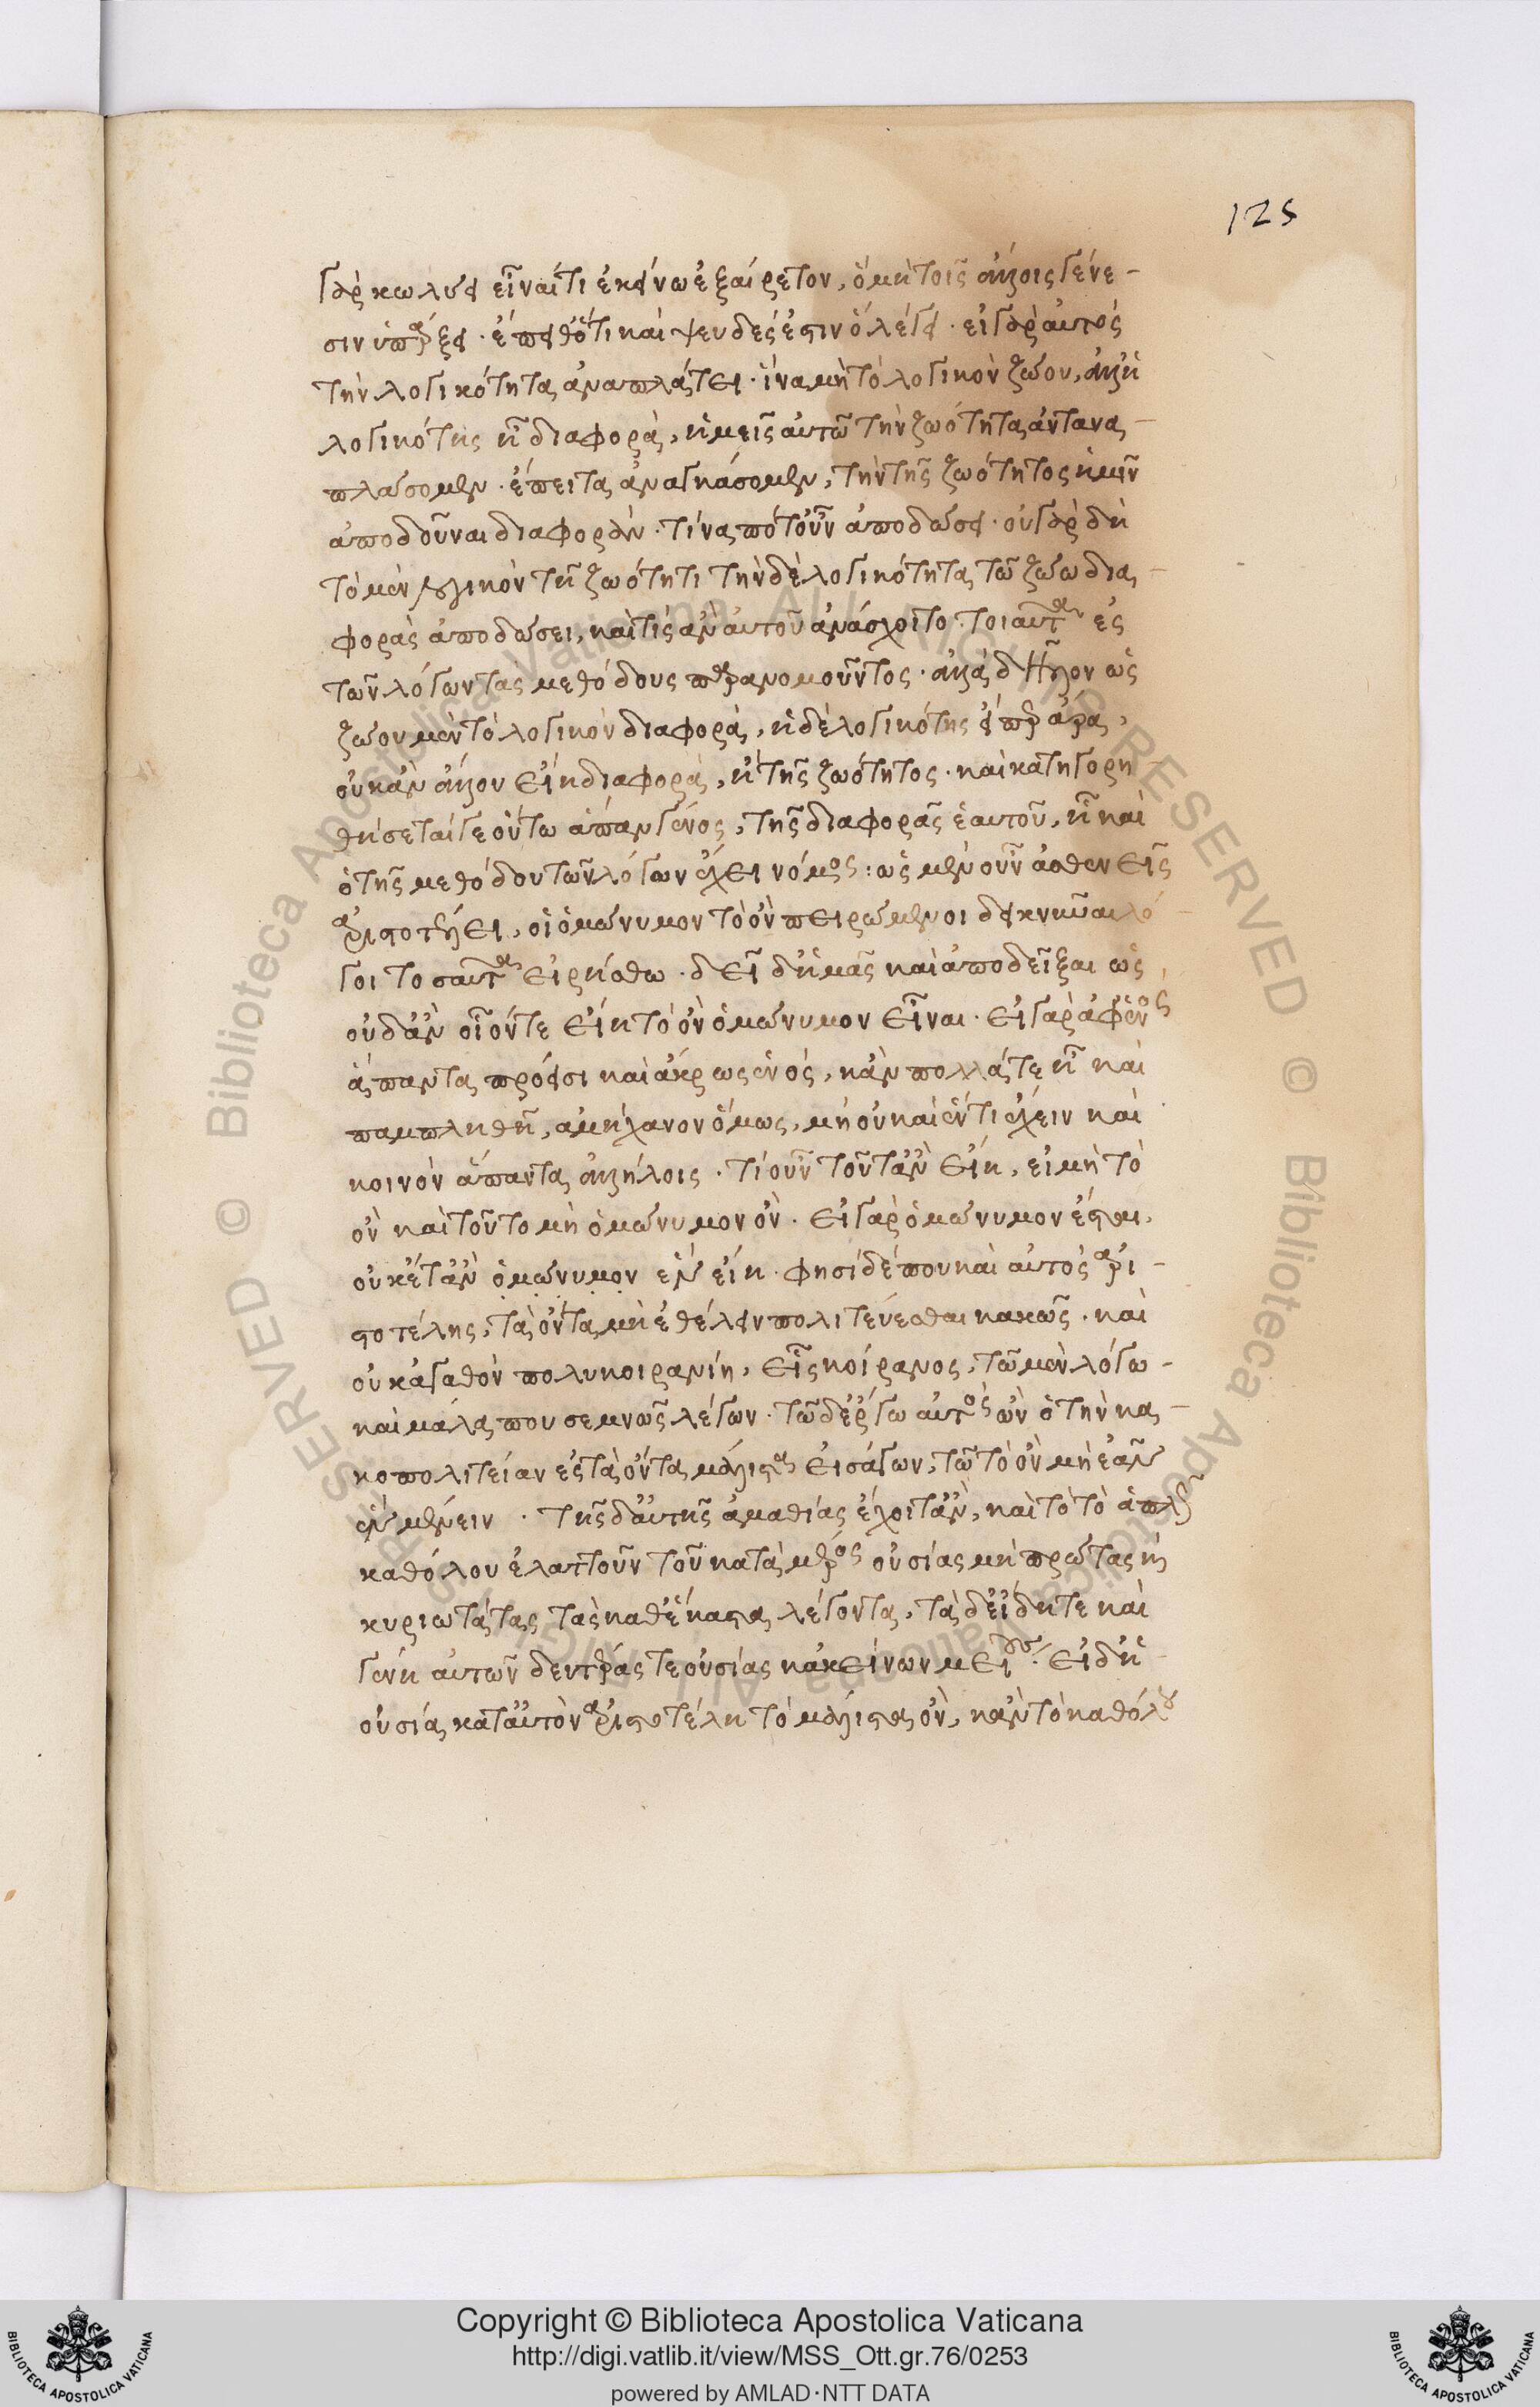 125
γὰρ κωλύει εἶναί τι ἐκείνω ἐξαίρετον, ὃ μὴ τοῖς ἄλλοις γένε-
σιν ὑπάρξει. ἔπειθ' ὅτι καὶ ψευδές ἐστιν ὃ λέγει. εἰ γὰρ αὐτὸς
τὴν λογικότητα ἀναπλάττει. ἵνα μὴ τὸ λογικὸν ζῶον, ἀλλ' ἡ
λογικότης ἦ διαφορὰ, ἡμεῖς αὐτῶ τὴν ζωότητα ἀντανα-
πλάσομεν. ἔπειτα ἀναγκάσομεν, τὴν τῆς ζωότητος ἡμῖν
ἀποδοῦναι διαφοράν. τίνα πότ' οὖν ἀποδώσει. οὐ γὰρ δὴ
τὸ μὲν λογικὸν τῆ ζωότητι τὴν δὲ λογικότητα τῶ ζώω δια-
φορὰς ἀποδώσει, καὶ τίς ἂν αὐτοῦ ἀνάσχοιτο τοιαῦτα ἐς
τῶν λόγων τὰς μεθόδους παρανομοῦντος. ἀλλὰ δῆλον ὡς
ζώου μὲν τὸ λογικὸν διαφορὰ, ἡ δὲ λογικότης εἴπερ ἄρα,
οὐκ ἂν ἄλλου εἴη διαφορὰ, ἢ τῆς ζωότητος. καὶ κατηγορη-
θήσεταί γε οὕτω ἅπαν γένος, τῆς διαφορᾶς ἑαυτοῦ, ἧ καὶ
ὁ τῆς μεθόδου τῶν λόγων ἔχει νόμος: ὡς μὲν οὖν ἀσθενεῖς
ἀριστοτέλει, οἱ ὁμώνυμον τὸ ὂν πειρώμενοι δεικνύναι λό-
γοι τοσαῦτα εἰρήσθω. δεῖ δ' ἡμᾶς καὶ ἀποδεῖξαι ὡς
οὐδ' ἂν οἷόν τε εἴη τὸ ὂν ὁμώνυμον εἶναι. εἰ γὰρ ἀφ' ἑνὸς
ἅπαντα πρόεισι καὶ ἄκρως ἑνός, κἂν πολλά τε ἦ καὶ
παμπληθῆ, ἀμήχανον ὅμως, μὴ οὐ καὶ ἕν τι ἔχειν καὶ
κοινὸν ἅπαντα ἀλλήλοις. τί οὖν τοῦτ' ἂν εἴη, εἰ μὴ τὸ
ὂν καὶ τοῦτο μὴ ὁμώνυμον ὄν. εἰ γὰρ ὁμώνυμον ἔσται,
οὐκέτ' ἂν ὁμώνυμον ἓν εἴη. φησὶ δέ που καὶ αὐτὸς ἀρι-
στοτέλης, τὰ ὄντα μὴ ἐθέλειν πολιτεύεσθαι κακῶς. καὶ
οὐκ ἀγαθὸν πολυκοιρανίη, εἷς κοίρανος, τῶ μὲν λόγω
καὶ μάλα που σεμνῶς λέγων. τῶ δ' ἔργω αὐτὸς ὢν ὁ τὴν κα-
κοπολιτείαν ἐς τὰ ὄντα μάλιστα εἰσάγων, τῶ τὸ ὂν μὴ ἐᾶν
ἓν μένειν. τῆς δ' αὐτῆς ἀμαθίας ἔχοιτ' ἂν, καὶ τὸ τὸ ἁπλῶς
καθόλου ἐλαττοῦν τοῦ κατὰ μέρος οὐσίας μὴ πρώτας ἢ
κυριωτάτας τὰς καθ' ἕκαστα λέγοντα, τὰ δ' εἴδη τε καὶ
γένη αὐτῶν δευτέρας τε οὐσίας κἀκείνων μείους. εἰ δ' ἡ
οὐσία κατ' αὐτὸν ἀριστοτέλη τὸ μάλιστα ὂν, κἂν τὸ καθόλου
Copyright © Biblioteca Apostolica Vaticana
http://digi.vatlib.it/view/MSS_Ott.gr.76/0253
powered by AMLAD·NTT DATA